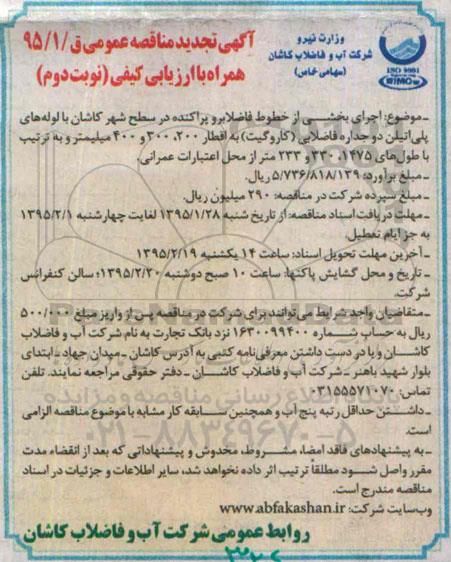 آگهی تجدید مناقصه عمومی ق/۹۵/۱
همراه با ارزیابی کیفی (نوبت دوم)
وزارت نیرو
شرکت آب و فاضلاب کاشان
(سهامی خاص)
ISO 9001
WIMO
ـ موضوع: اجرای بخشی از خطوط فاضلابرو پراکنده در سطح شهر کاشان با لوله‌های
پلی‌اتیلن دو جداره فاضلابی (کاروگیت) به اقطار ۲۰۰، ۳۰۰ و ۴۰۰ میلیمتر و به ترتیب
با طول‌های ۱۴۷۵، ۳۳۰ و ۲۳۳ متر از محل اعتبارات عمرانی.
ـ مبلغ برآورد: ۵/۷۳۶/۸۱۸/۱۳۹ ریال.
ـ مبلغ سپرده شرکت در مناقصه: ۲۹۰ میلیون ریال.
ـ مهلت دریافت اسناد مناقصه: از تاریخ شنبه ۱۳۹۵/۱/۲۸ لغایت چهارشنبه ۱۳۹۵/۲/۱
به جز ایام تعطیل.
ـ آخرین مهلت تحویل اسناد: ساعت ۱۴ یکشنبه ۱۳۹۵/۲/۱۹
ـ تاریخ و محل گشایش پاکتها: ساعت ۱۰ صبح دوشنبه ۱۳۹۵/۲/۲۰؛ سالن کنفرانس
شرکت.
ـ متقاضیان واجد شرایط می‌توانند برای شرکت در مناقصه پس از واریز مبلغ ۵۰۰/۰۰۰
ریال به حساب شماره ۱۶۳۰۰۹۹۴۰۰ نزد بانک تجارت به نام شرکت آب و فاضلاب
کاشان و با در دست داشتن معرفی‌نامه کتبی به آدرس کاشان ـ میدان جهاد ـ ابتدای
بلوار شهید باهنر ـ شرکت آب و فاضلاب کاشان ـ دفتر حقوقی مراجعه نمایند. تلفن
تماس: ۰۳۱۵۵۵۷۱۰۷۰
ـ داشتن حداقل رتبه پنج آب و همچنین سابقه کار مشابه با موضوع مناقصه الزامی
است.
ـ به پیشنهادهای فاقد امضا، مشروط، مخدوش و پیشنهاداتی که بعد از انقضاء مدت
مقرر واصل شود مطلقا ترتیب اثر داده نخواهد شد، سایر اطلاعات و جزئیات در اسناد
مناقصه مندرج است.
وب‌سایت شرکت: www.abfakashan.ir
روابط عمومی شرکت آب و فاضلاب کاشان
پایگاه اطلاع رسانی مناقصه و مزایده
۰۲۱-۸۸۳۴۹۶۷۰-۵